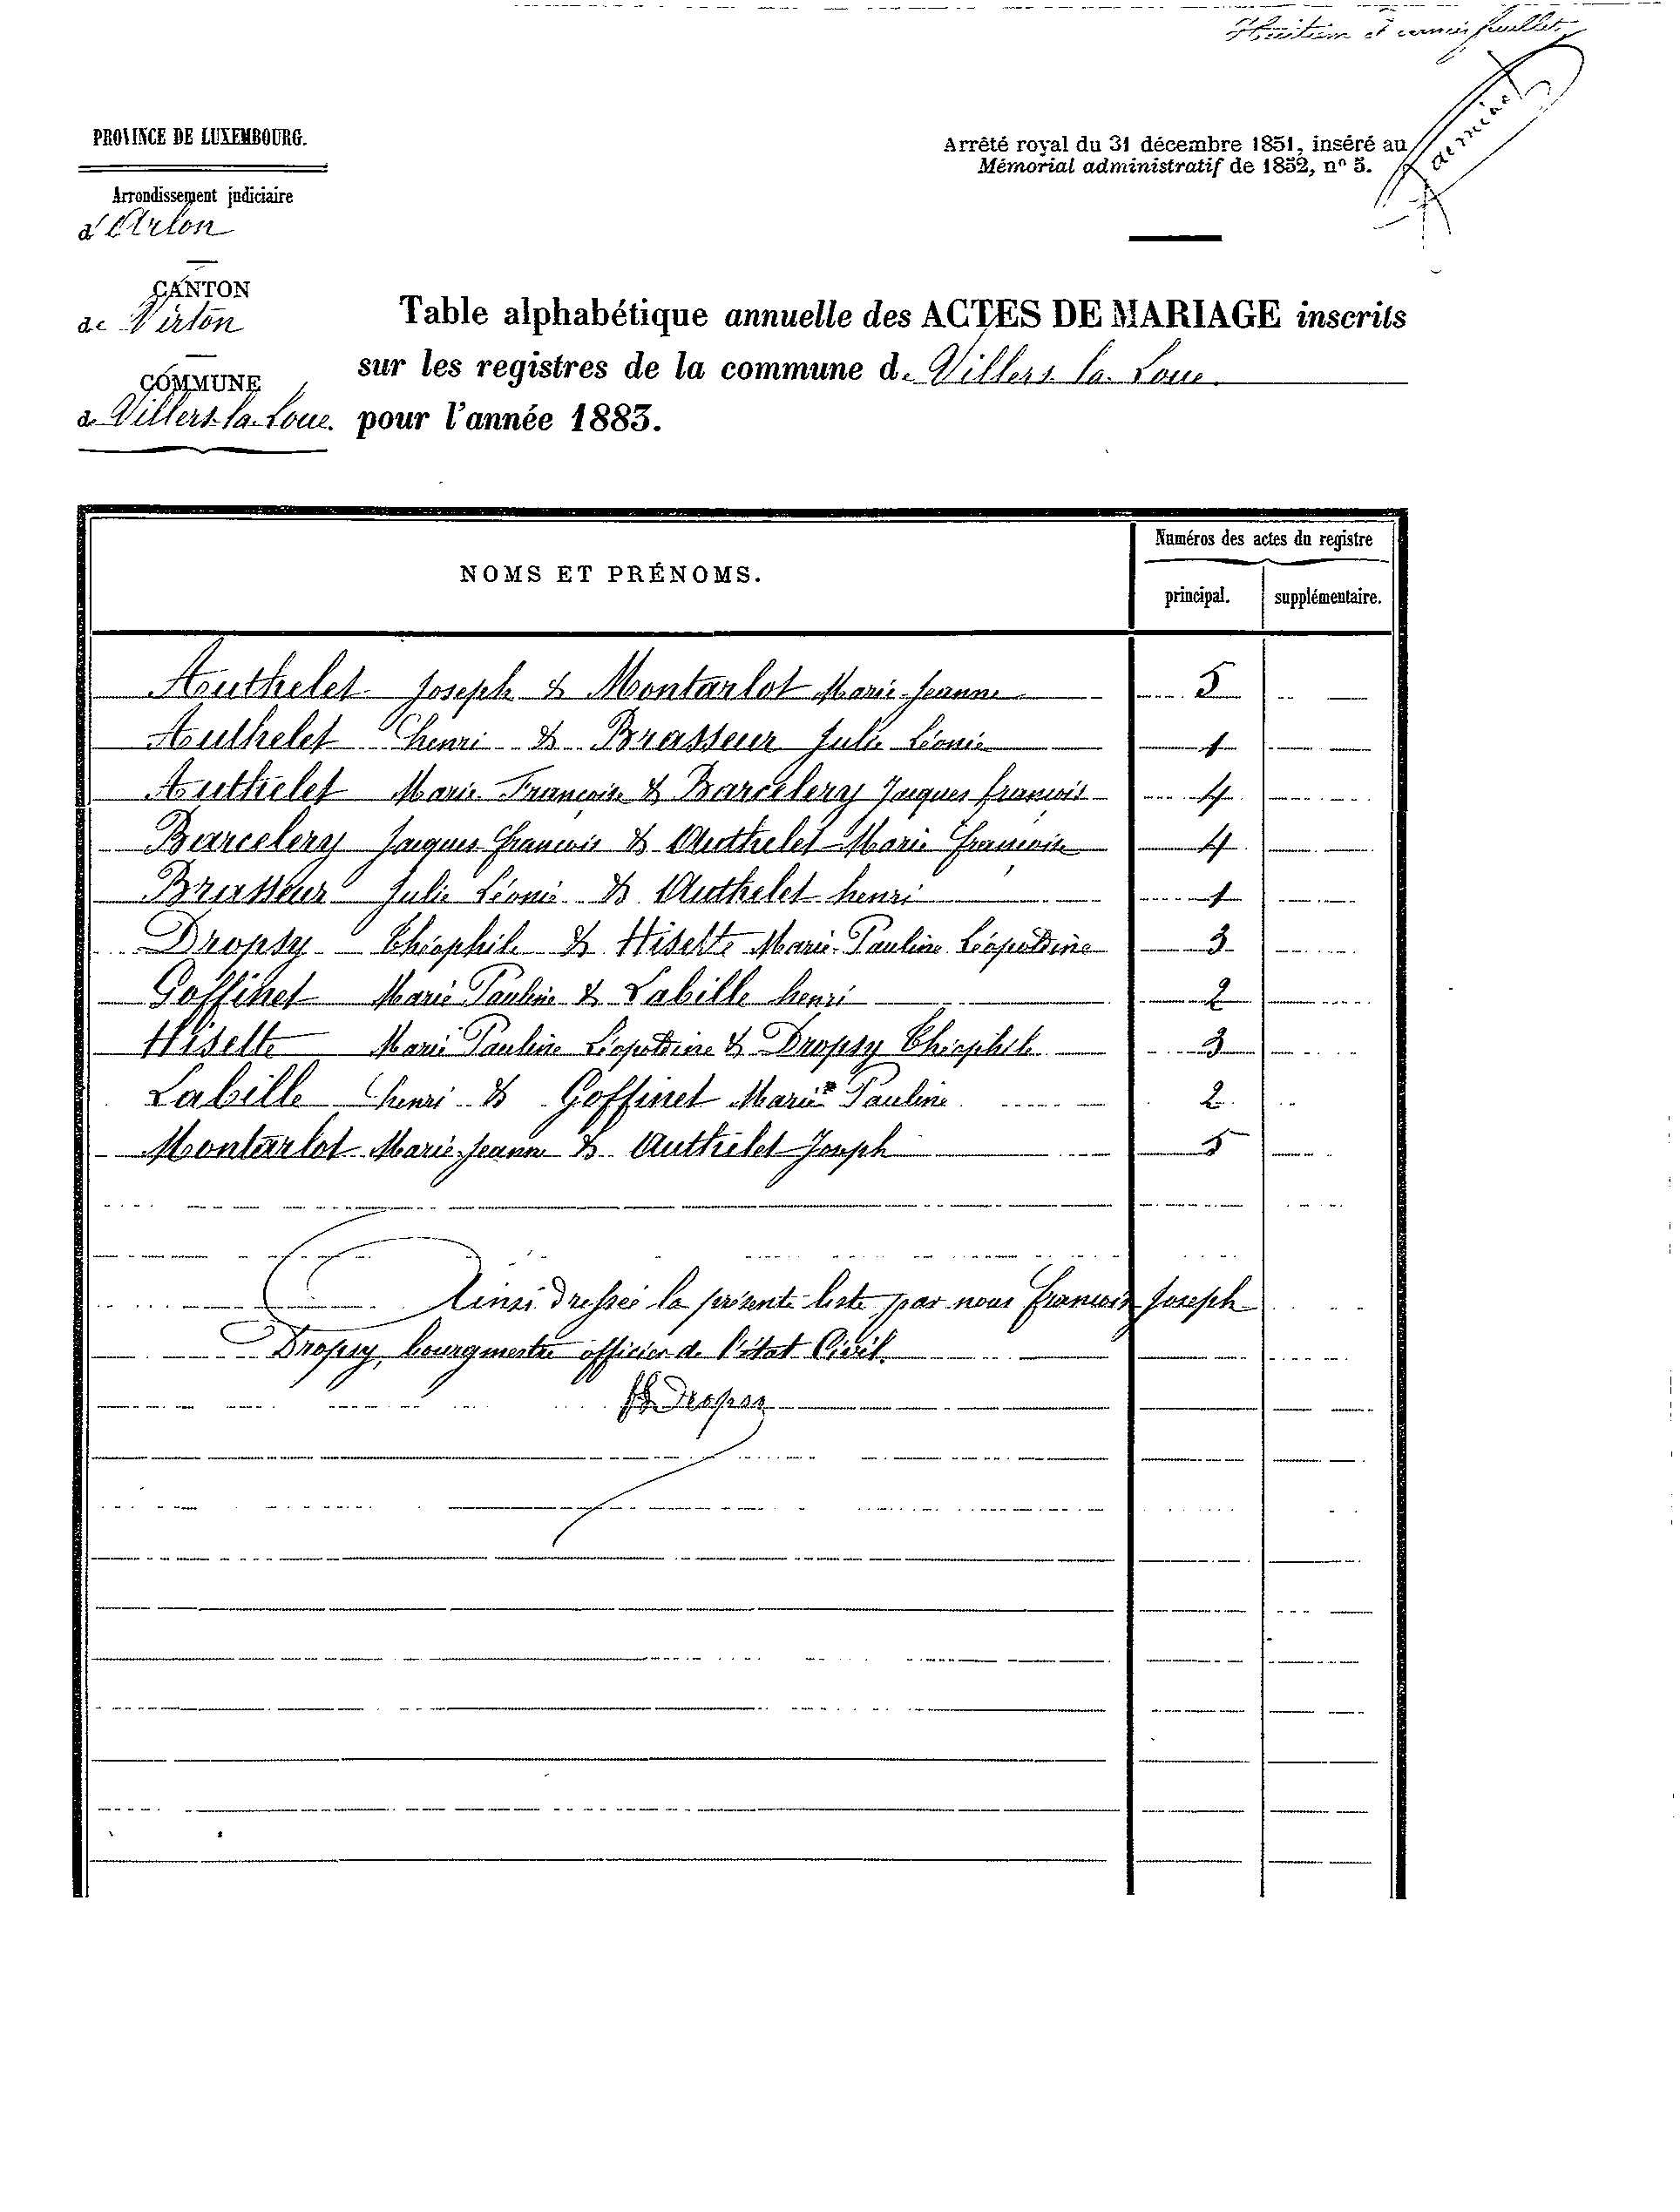 Huitième et dernier feuillet
PROVINCE DE LUXEMBOURG.
Arrêté royal du 31 décembre 1851, inséré au
Mémorial administratif de 1852, nº 5.
Arrondissement judiciaire
d'Arlon
CANTON
de Virton
COMMUNE
de Villers-la-Loue.
Table alphabétique annuelle des ACTES DE MARIAGE inscrits
sur les registres de la commune de Villers la Loue.
pour l'année 1883.
NOMS ET PRÉNOMS.
Numéros des actes du registre
principal. supplémentaire.
Authelet Joseph & Montarlot Marie-Jeanne 5
Authelet henri & Brasseur Julie Léonie 1
Authelet Marie Françoise & Barcelery Jacques françois 4
Barcelery Jacques françois & Authelet Marie françoise 4
Brasseur Julie Léonie & Authelet henri 1
Dropsy Théophile & Hiselte Marie Pauline Léopoldine 3
Goffinet Marie Pauline & Labille henri 2
Hiselte Marie Pauline Léopoldine & Dropsy Théophile 3
Labille henri & Goffinet Marie Pauline 2
Montarlot Marie-Jeanne & Authelet Joseph 5
Ainsi dressée la présente liste par nous françois Joseph
Dropsy, bourgmestre officier de l'état Civil.
Dropsy